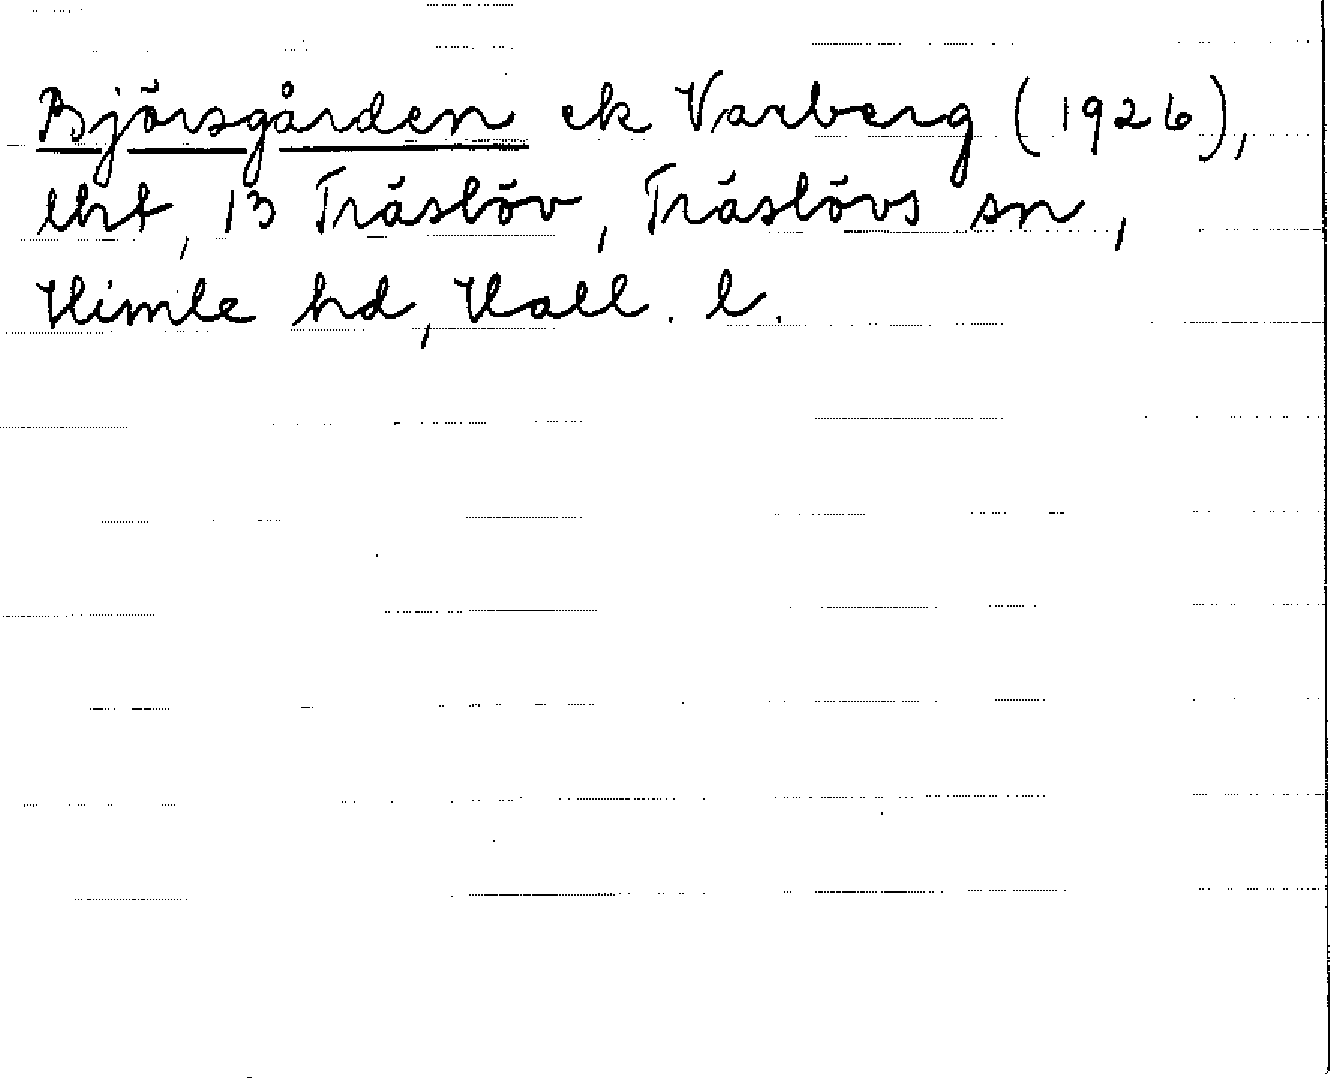 Björsgården ek Varberg (1926),
lht, 13 Träslöv, Träslövs sn,
Himle hd, Hall. l.